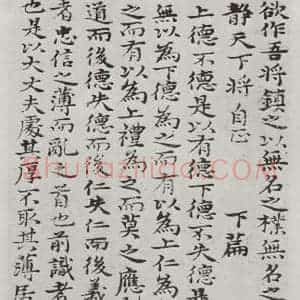 欲作吾將鎮之以無名之樸無名之
静天下将自正 下篇
上德不德是以有德下德不失德是
無以為下德為之而有以為上仁為
之而有以為上禮為之而莫之應
道而後德失德而後仁失仁而後義
者忠信之薄而亂之首也前識者
也是以大丈夫處其厚不取其薄居
shufaziliao.COM